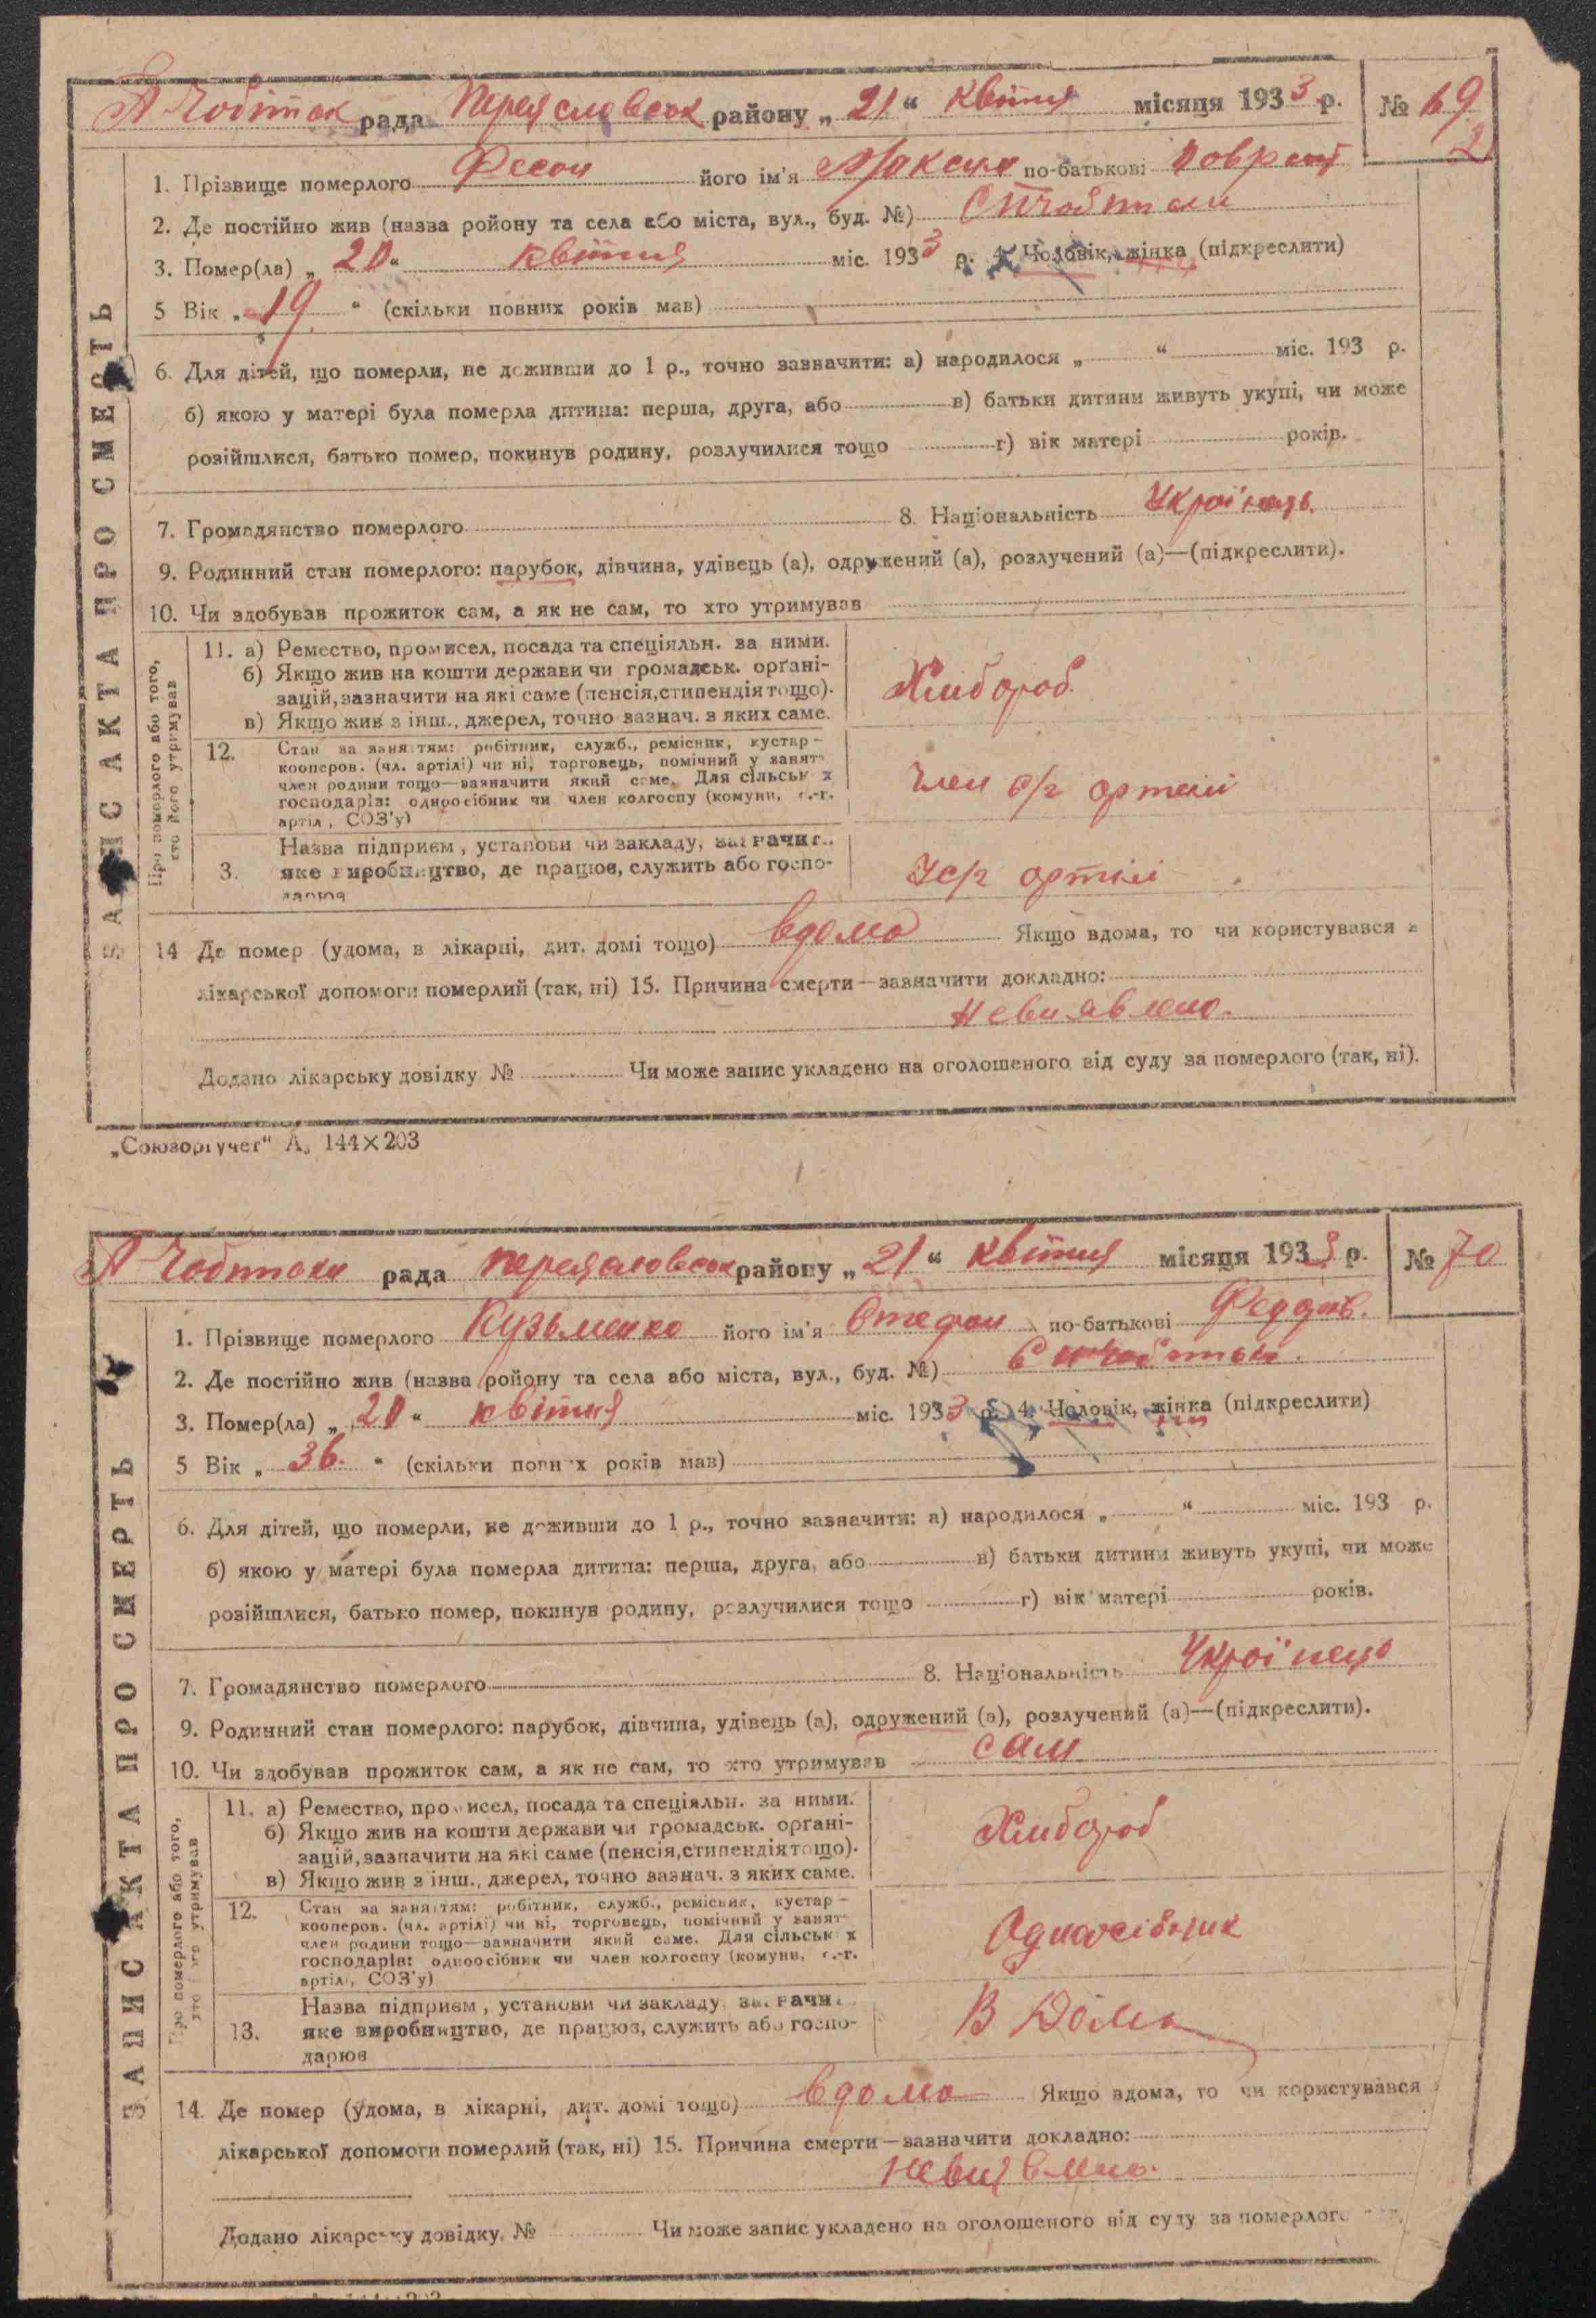 А Чобіток рада Переяславськ району „ 21 “ квітня місяця 1933 р. № 69
2
1. Прізвище померлого Фесон його ім'я Максим по-батькові
2. Де постійно жив (назва ройону та села або міста, вул., буд. №)
3. Помер(ла) „ 20 “ квітня міс. 1933 р. 4. Чоловік, жінка (підкреслити)
5 Вік „ 19 “ (скільки повних років мав)
6. Для дітей, що померли, не доживши до 1 р., точно зазначити: а) народилося „ “ міс. 193 р.
б) якою у матері була померла дитина: перша, друга, або в) батьки дитини живуть укупі, чи може
розійшлися, батько помер, покинув родину, розлучилися тощо г) вік матері років.
7. Громадянство померлого 8. Національність Українець
9. Родинний стан померлого: парубок, дівчина, удівець (а), одружений (а), розлучений (а)—(підкреслити).
10. Чи здобував прожиток сам, а як не сам, то хто утримував
ЗАПИС АКТА ПРО СМЕРТЬ
При померлого або того,
хто його утримував
11. а) Ремество, промисел, посада та спеціяльн. за ними.
б) Якщо жив на кошти держави чи громадськ. орґані-
зацій, зазначити на які саме (пенсія, стипендія тощо).
в) Якщо жив з інш., джерел, точно зазнач. з яких саме.
Хлібороб
12. Стан за заняттям: робітник, служб., ремісник, кустар -
кооперов. (чл. артілі) чи ні, торговець, помічний у занят
член родини тощо—зазначити який саме. Для сільськ х
господарів: одноосібник чи член колгоспу (комуни, с.-г.
артіл, СОЗ'у)
Член с/г артелі
3. Назва підприєм, установи чи закладу, зазначит.
яке виробництво, де працює, служить або госпо-
дарює
У с/г артілі
14 Де помер (удома, в лікарні, дит. домі тощо) вдома Якщо вдома, то чи користувався з
лікарської допомоги померлий (так, ні) 15. Причина смерти — зазначити докладно:
Невиявлено.
Додано лікарську довідку № Чи може запис укладено на оголошеного від суду за померлого (так, ні).
„Союзоргучет“ А₅ 144×203
А Чобітоки рада Переяславськ району „ 21 “ квітня місяця 1933 р. № 70
1. Прізвище померлого Кузьменко його ім'я Стефан по-батькові
2. Де постійно жив (назва ройону та села або міста, вул., буд. №)
3. Помер(ла) „ 20 “ квітня міс. 1933 р. 4. Чоловік, жінка (підкреслити)
5 Вік „ 36. “ (скільки повних років мав)
6. Для дітей, що померли, не доживши до 1 р., точно зазначити: а) народилося „ “ міс. 193 р.
б) якою у матері була померла дитина: перша, друга, або в) батьки дитини живуть укупі, чи може
розійшлися, батько помер, покинув родину, розлучилися тощо г) вік матері років.
7. Громадянство померлого 8. Національність Українець
9. Родинний стан померлого: парубок, дівчина, удівець (а), одружений (а), розлучений (а)—(підкреслити).
10. Чи здобував прожиток сам, а як не сам, то хто утримував сам
ЗАПИС АКТА ПРО СМЕРТЬ
Про померлого або того,
хто його утримував
11. а) Ремество, промисел, посада та спеціяльн. за ними.
б) Якщо жив на кошти держави чи громадськ. орґані-
зацій, зазначити на які саме (пенсія, стипендія тощо).
в) Якщо жив з інш., джерел, точно зазнач. з яких саме.
Хлібороб
12. Стан за заняттям: робітник, служб., ремісник, кустар -
кооперов. (чл. артілі) чи ні, торговець, помічний у занят
член родини тощо—зазначити який саме. Для сільськ х
господарів: одноосібник чи член колгоспу (комуни, с.-г.
артіл, СОЗ'у)
Одноосібник
13. Назва підприєм, установи чи закладу, зазначи
яке виробництво, де працює, служить або госпо-
дарює
В Дома
14. Де помер (удома, в лікарні, дит. домі тощо) вдома Якщо вдома, то чи користувався
лікарської допомоги померлий (так, ні) 15. Причина смерти — зазначити докладно:
Невиявлено.
Додано лікарську довідку № Чи може запис укладено на оголошеного від суду за померлого